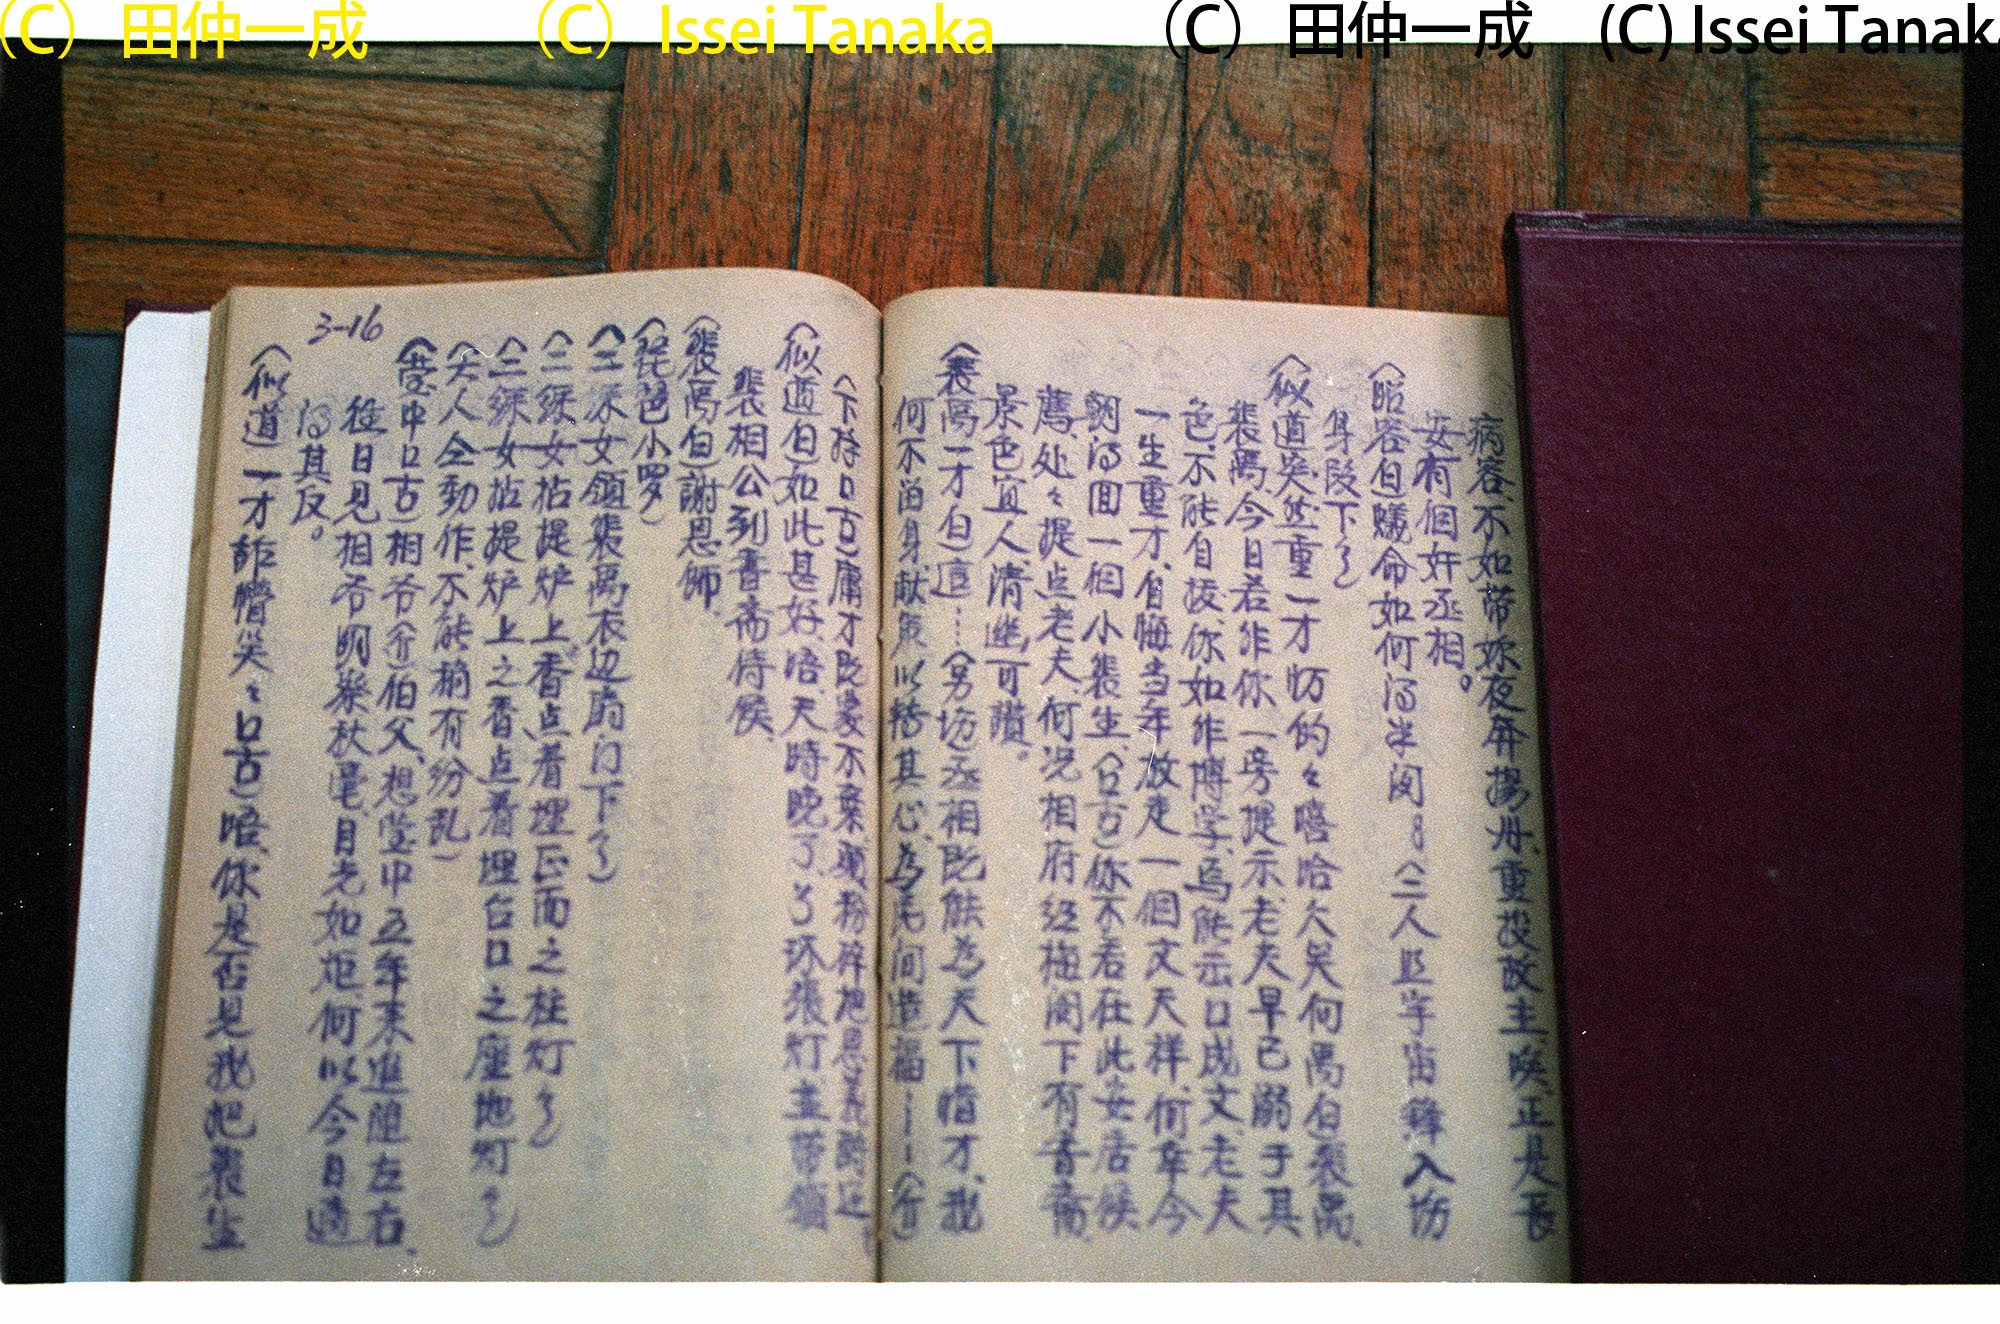 (C) 田仲一成 (C) Issei Tanaka (C) 田仲一成 (C) Issei Tanaka
病容、不如带妳夜奔揚州、重投故主、唉、正是長
安有個奸丞相。
(昭容白)蟻命如何得半閒
(二人
宇宙鋒入坊
身段下了)
(似道突然重一才
的々嘻哈大笑何禹白)裴禹、
裴禹、今日若非你一旁提示、老夫早已溺于其
色、不能自拔、你如非博学、焉能示口成文、老夫
一生重才、自悔当年放走一個文天祥、何幸今
朝得回一個小裴生、(口古)你不若在此安居候
薦、处々提点老夫、何况相府红梅阁下有書斋
景色宜人、清幽可讃。
(裴禹一才白)這……(另场)丞相既能為天下惜才、我
何不留身献策以
其心、為民间造福———(介)
(下拎口古)庸才既蒙不棄、
粉碎
恩
(似道白)如此甚好、唔、天時晚了、了环張灯主带領
裴相公到書斋侍候、
(裴禹白)謝恩师、
(琵琶小罗)
(二婇女領裴禹衣边廂门下了)
(二婇女拈提炉上香点着埋正面之柱灯了)
(二婇女拈提炉上之香点着埋台口之座地灯了)
(夫人仝動作、不能稍有纷乱)
(莹中口古)相爷(介)伯父、想莹中五年来進随左右、
往日見相爷明察秋毫、目光如炬、何以今日適
得其反。
3-16
(似道一才詐懵笑々口古)唔、你是否見我把裴生